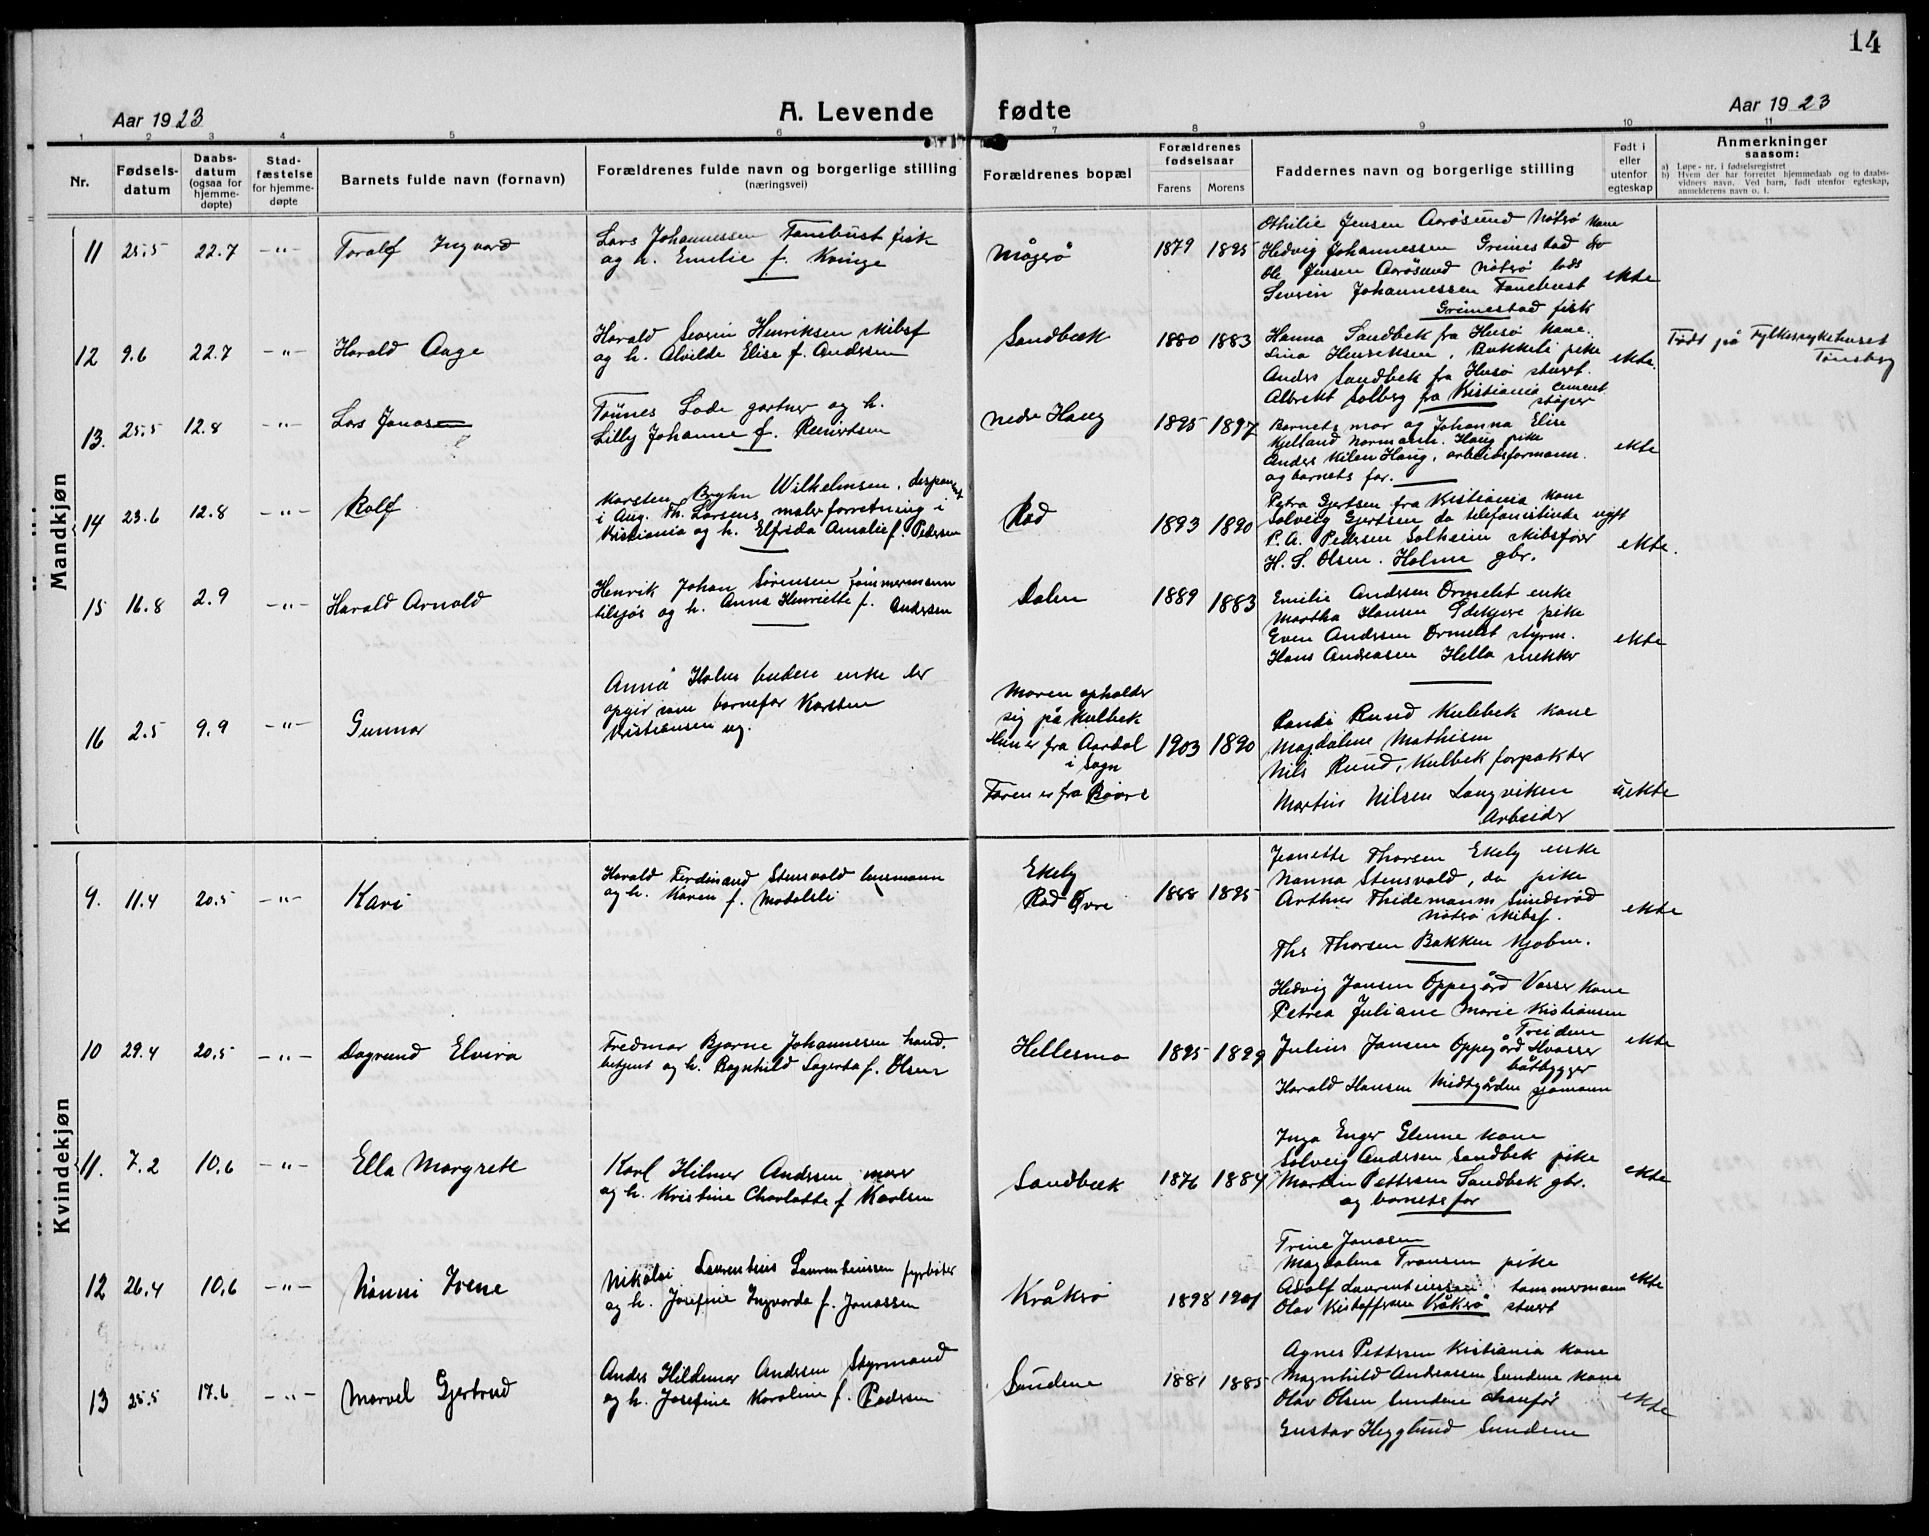 14
Aar 1923
A. Levende fødte
Aar 1923
1 2 3 4 5 6 7 8 9 10 11
Nr.
Fødsels-
datum
Daabs-
datum
(ogsaa for
hjemme-
døpte)
Stad-
fæstelse
for hjemme-
døpte
Barnets fulde navn (fornavn)
Forældrenes fulde navn og borgerlige stilling
(næringsvei)
Forældrenes bopæl
Forældrenes
fødselsaar
Farens Morens
Faddernes navn og borgerlige stilling
Født i
eller
utenfor
egteskap
Anmerkninger
saasom:
a) Løpe-nr. i fødselsregistret
b) Hvem der har forrettet hjemmedaab og to daabs-
vidners navn. Ved barn, født utenfor egteskap,
anmelderens navn o. l.
Mandkjøn
11 25.5 22.7 -"- Toralf Ingvard
Lars Johannessen Fanebust fisk
og h. Emilie f. Kvinge
Mågerø
1879 1895
Othilie Jensen Aarøsund Nøterø kone
Hedvig Johannessen Grimestad do
Ole Jensen Aarøsund Nøterø lods
Severin Johannessen Fanebust
Grimestad fisk
ekte
12 9.6 22.7 -"- Harald Aage
Harald Severin Henriksen skibsf
og h. Alvilde Elise f. Andersen
Sandbæk
1880 1883
Hanna Sandbek fra Husø kone.
Lina Henriksen, Bakkeli pike
Anders Sandbek fra Husø stuert.
Albrekt Solberg fra Kristiania cement
støper
ekte.
Født på Fylkessykehuset
Tønsberg
13. 25.5 12.8 -"- Lars Jonas
Tønnes Lode gartner og h.
Lilly Johanne f. Reiertsen
Nedre Haug
1895 1897
Barnets mor og Johanna Elise
Kulland Normann. Haug pike
Anders Milen Haug, arbeidsformann.
og barnets far.
ekte
14 23.6 12.8 -"- Rolf
Karsten Bryhn Wilhelmsen, disponent
i Aug. Th. Larsens malerforretning i
Kristiania og h. Elfrida Amalie f. Pedersen
Rød
1893 1890
Petra Gjertsen fra Kristiania kone
Solveig Gjertsen do telefonistinde ugift
P. A. Pedersen Solheim skibsfører
H. S. Olsen. Holme gbr.
ekte.
15 16.8 2.9 -"- Harald Arnold
Henrik Johan Sørensen tømmermann
tilsjøs og h. Anna Henriette f. Andersen
Dalen
1889 1883
Emilie Andersen Ormelet enke
Martha Hansen Gdekjære pike
Even Andersen Ormelet styrm.
Hans Andreasen Hella snekker
ekte
16 2.5 9.9 -"- Gunnar
Anna Holen budeie enke der
opgir som barnefar Karsten
Kristiansen ug.
Moren opholder
sig på Kulbek
Hun er fra Aardal
i Sogn
Faren er fra Baars
1903 1890
Randi Rund Kulebek kone
Magdalene Mathisen
Nils Rund, Kulbek forpakter
Martin Nilsen Langviken
Arbeider
uekte
Kvindekjøn
9. 11.4 20.5 -"- Kari
Harald Ferdinand Stensvold lensmann
og h. Karen f. Modalsli
Ekely
Rød Øvre
1888 1895
Jeanette Thorsen Ekely enke
Nanna Stensvold, do pike
Arthur Thidemann Sundsrød
Nøterø skibsf.
Ths Thorsen Bakken kjøbm.
ekte
10 29.4 20.5 -"- Dagrund Elvira
Fredmar Bjarne Johannessen hand.
betjent og h. Ragnhild Dagerta f. Olsen
Hellesmo
1895 1899
Hedvig Jansen Oppegård Vasser kone
Petrea Juliane Marie Kristiansen
Treidene
Julius Jansen Oppegård Hvasser
båtbygger
Harald Hansen Midtgården sjømann
ekte
11. 7.2 10.6 -"- Ella Margrete
Karl Hilmar Andersen murer
og h. Kristine Charlotte f Karlsen
Sandbæk
1876 1884
Inga Enger Glenne kone
Solveig Andersen Sandbek pike
Martin Pettersen Sandbek gbr.
og barnets far
ekte
12 26.4 10.6 -"- Nanni Irene
Nikolai Laurentius Laurentiussen fyrbøter
og h. Josefine Ingvarda f. Jonassen
Kråkrø
1898 1901
Trine Jonasen
Magdalena Fransen pike
Adolf Laurentiussen tømmermann
Olav Kristoffersen Kråkrø stuert
ekte
13 25.5 17.6 -"- Marvel Gjertrud
Anders Hildemar Andersen Styrmand
og h. Josefine Karoline f. Pedersen
Sundene
1881 1885
Agnes Pettersen Kristiania kone
Magnhild Andreassen Sundene kone
Olav Olsen Sundene chaufør
Gustav Hegglund Sundene
ekte